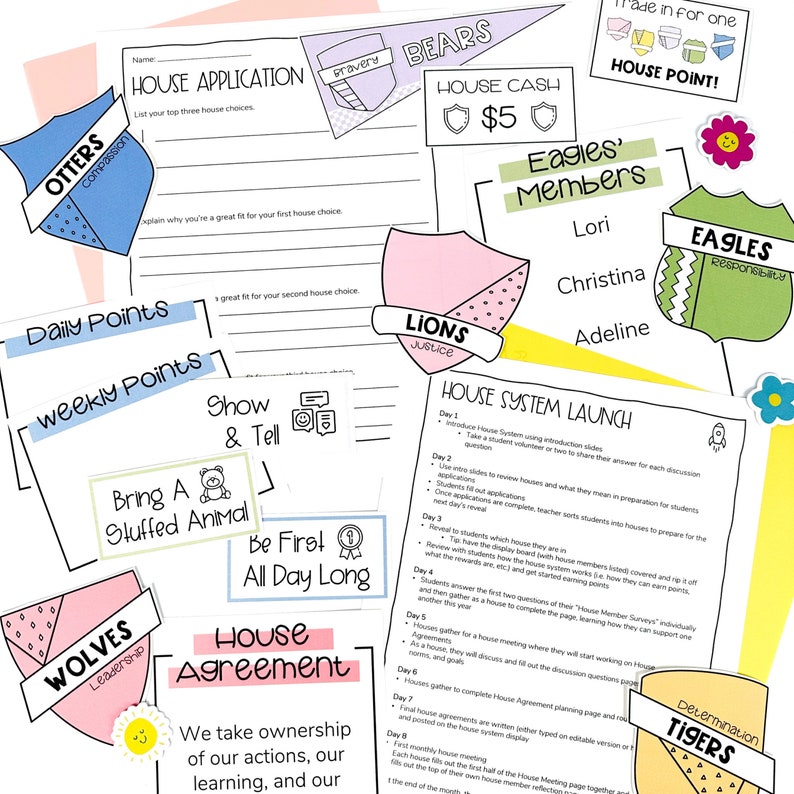 Name:
HOUSE APPLICATION
List your top three house choices.
Explain why you're a great fit for your first house choice.
a great fit for your second house choice.
house choice.
Bravery
BEARS
HOUSE CASH
$5
Trade in for one
HOUSE POINT!
OTTERS
Compassion
Eagles'
Members
Lori
Christina
Adeline
EAGLES
Responsibility
LIONS
Justice
Daily Points
Weekly Points
Show
& Tell
Bring A
Stuffed Animal
Be First
All Day Long
WOLVES
Leadership
House
Agreement
We take ownership
of our actions, our
learning, and our
HOUSE SYSTEM LAUNCH
Day 1
Introduce House System using introduction slides
Take a student volunteer or two to share their answer for each discussion
question
Day 2
Use intro slides to review houses and what they mean in preparation for students
applications
Students fill out applications
Once applications are complete, teacher sorts students into houses to prepare for the
next day's reveal
Day 3
Reveal to students which house they are in
Tip: have the display board (with house members listed) covered and rip it off
Review with students how the house system works (i.e. how they can earn points,
what the rewards are, etc.) and get started earning points
Day 4
Students answer the first two questions of their "House Member Surveys" individually
and then gather as a house to complete the page, learning how they can support one
another this year
Day 5
Houses gather for a house meeting where they will start working on House
Agreements
As a house, they will discuss and fill out the discussion questions page
norms, and goals
Day 6
Houses gather to complete House Agreement planning page and
Day 7
Final house agreements are written (either typed on editable version or
and posted on the house system display
Day 8
First monthly house meeting
Each house fills out the first half of the House Meeting page together and
fills out the top of their own house member reflection
t the end of the month, the
Determination
TIGERS